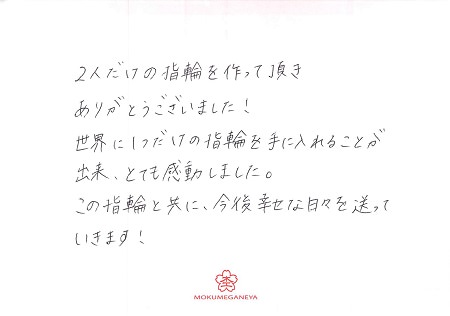 2人だけの指輪を作って頂き
ありがとうございました！
世界に1つだけの指輪を手に入れることが
出来、とても感動しました。
この指輪と共に、今後幸せな日々を送って
いきます！
MOKUMEGANEYA